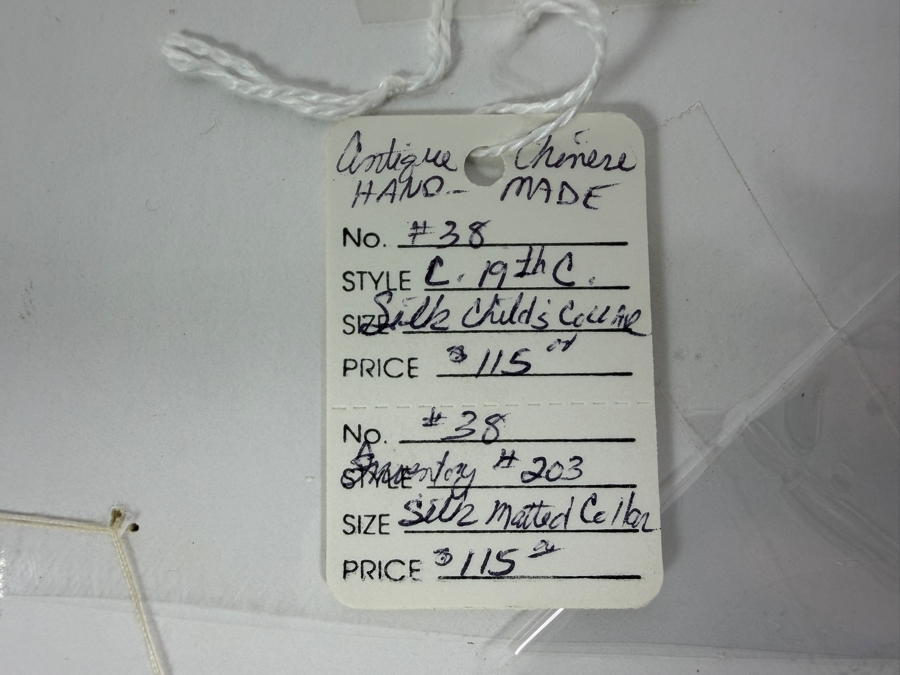 Antique Chinese
HAND- MADE
No. #38
STYLE C. 19th C.
SIZE Silk Child's Collar
PRICE $115 00
No. #38
STYLE Inventory #203
SIZE Silk Matted Collar
PRICE $115 00